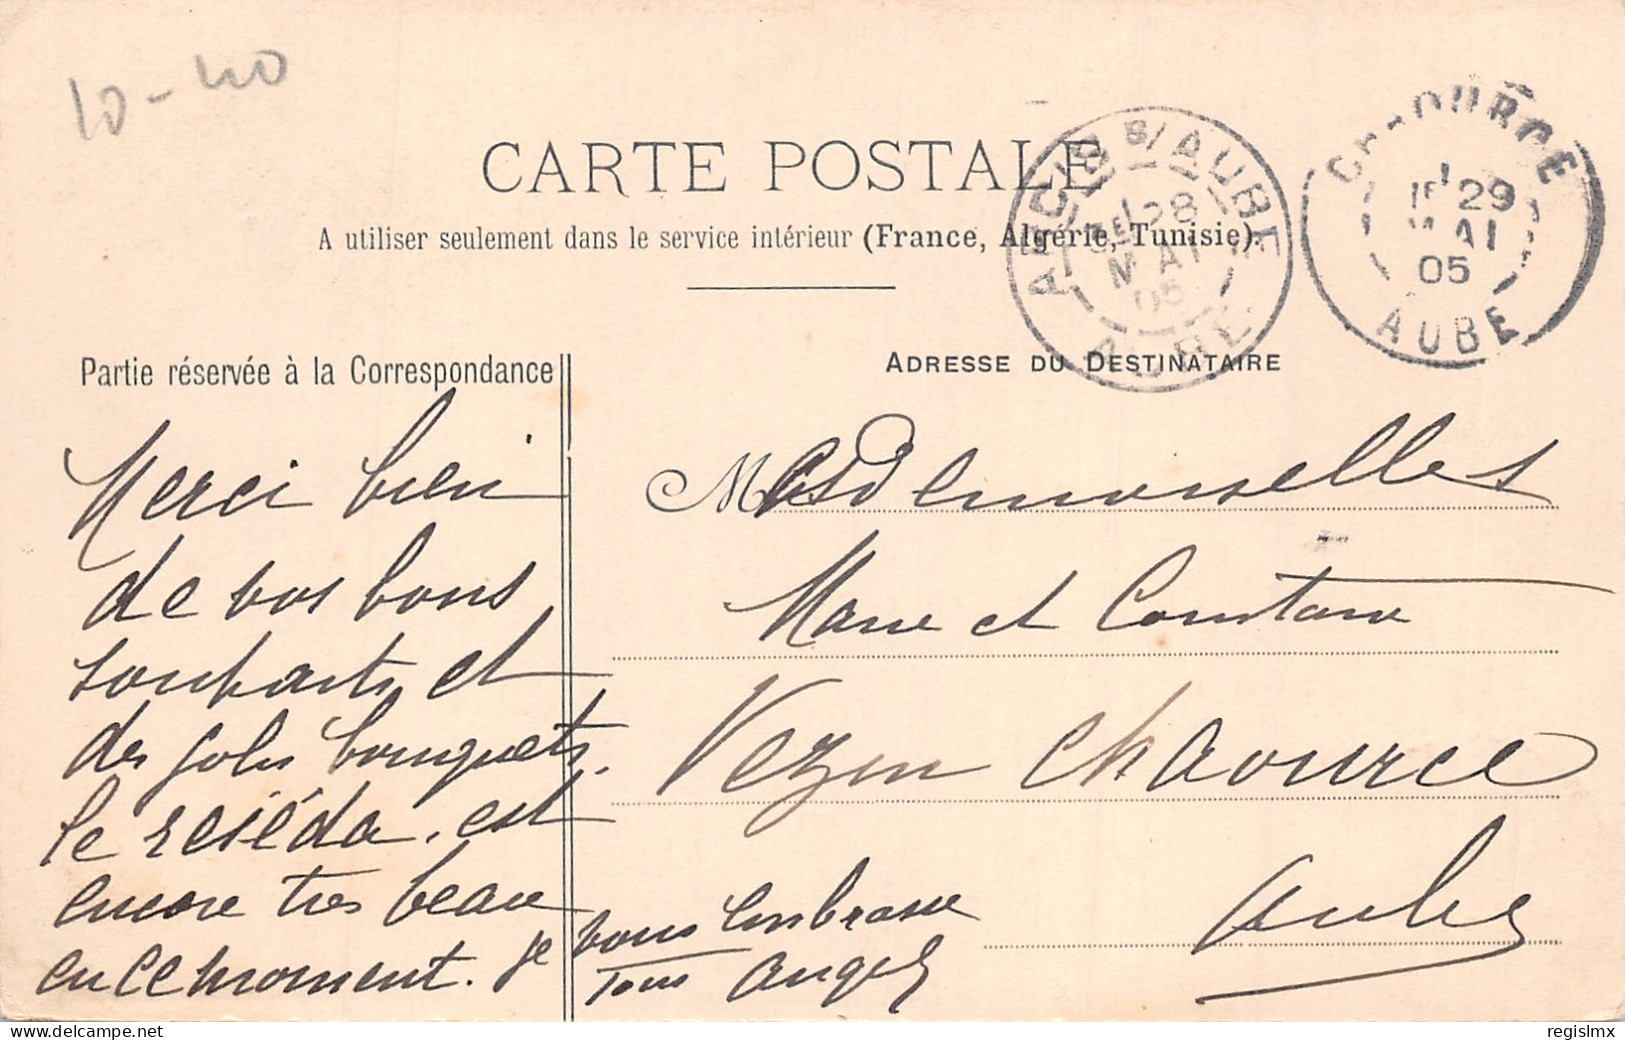 10-40
CARTE POSTALE
A utiliser seulement dans le service intérieur (France, Algérie, Tunisie).
ARCIS S/ AUBE
28
MAI
05
AUBE
CHAOURCE
1E 29
MAI
05
AUBE
Partie réservée à la Correspondance
ADRESSE DU DESTINATAIRE
Merci bien
de vos bons
souhaits et
des jolis bouquets.
le réséda. est
encore très beau
en ce moment. Je vous embrasse
Tous Angel
Mesdemoiselles
Marie et Constance
Vezin Chaource
Aube
delcampe.net
regislmx